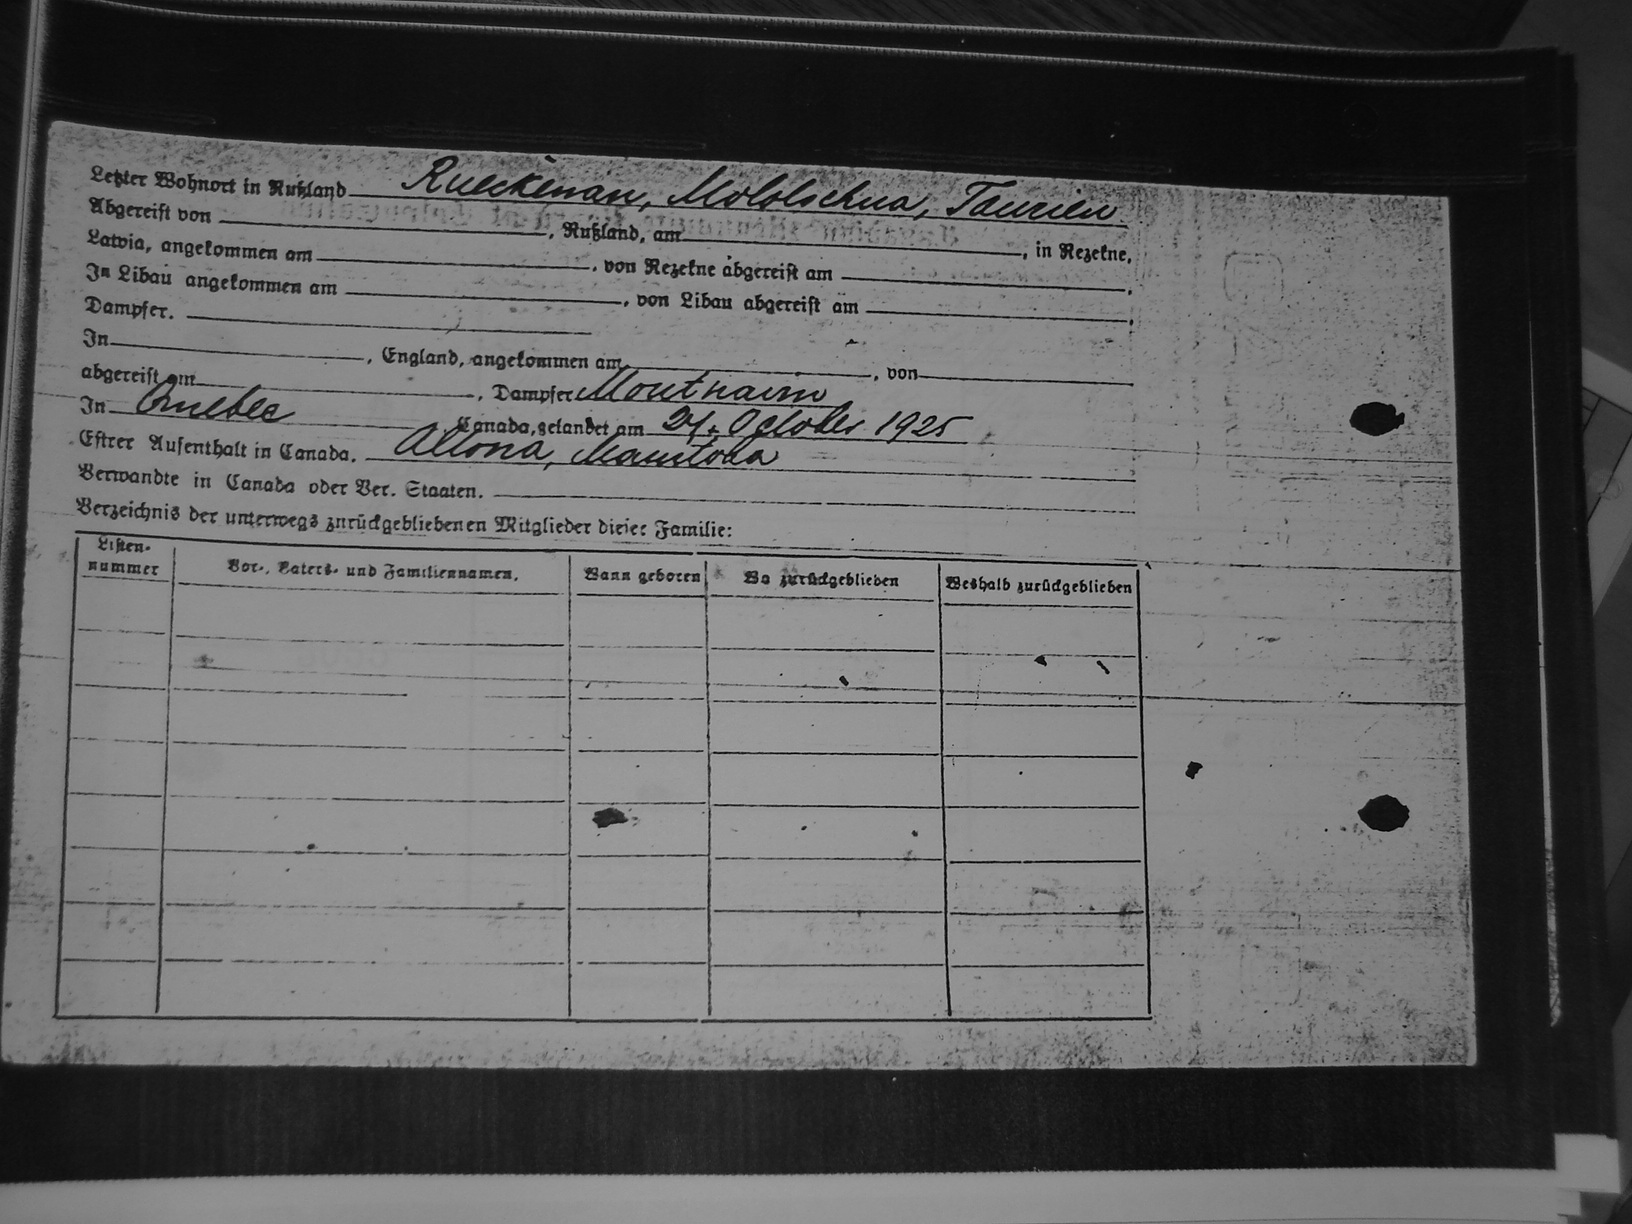 Letzter Wohnort in Rußland Rueckenau, Molotschna, Taurien
Abgereist von , Rußland, am , in Rezekne,
Latvia, angekommen am , von Rezekne abgereist am .
In Libau angekommen am , von Libau abgereist am ,
Dampfer.
In , England, angekommen am , von
abgereist am , Dampfer Montnairn
In Quebec Canada, gelandet am 24. October 1925
Estrer Aufenthalt in Canada. Altona, Manitoba
Verwandte in Canada oder Ver. Staaten.
Verzeichnis der unterwegs zurückgebliebenen Mitglieder dieser Familie:
Listen-nummer Vor-, Vaters- und Familiennamen. Wann geboren Wo zurückgeblieben Weshalb zurückgeblieben